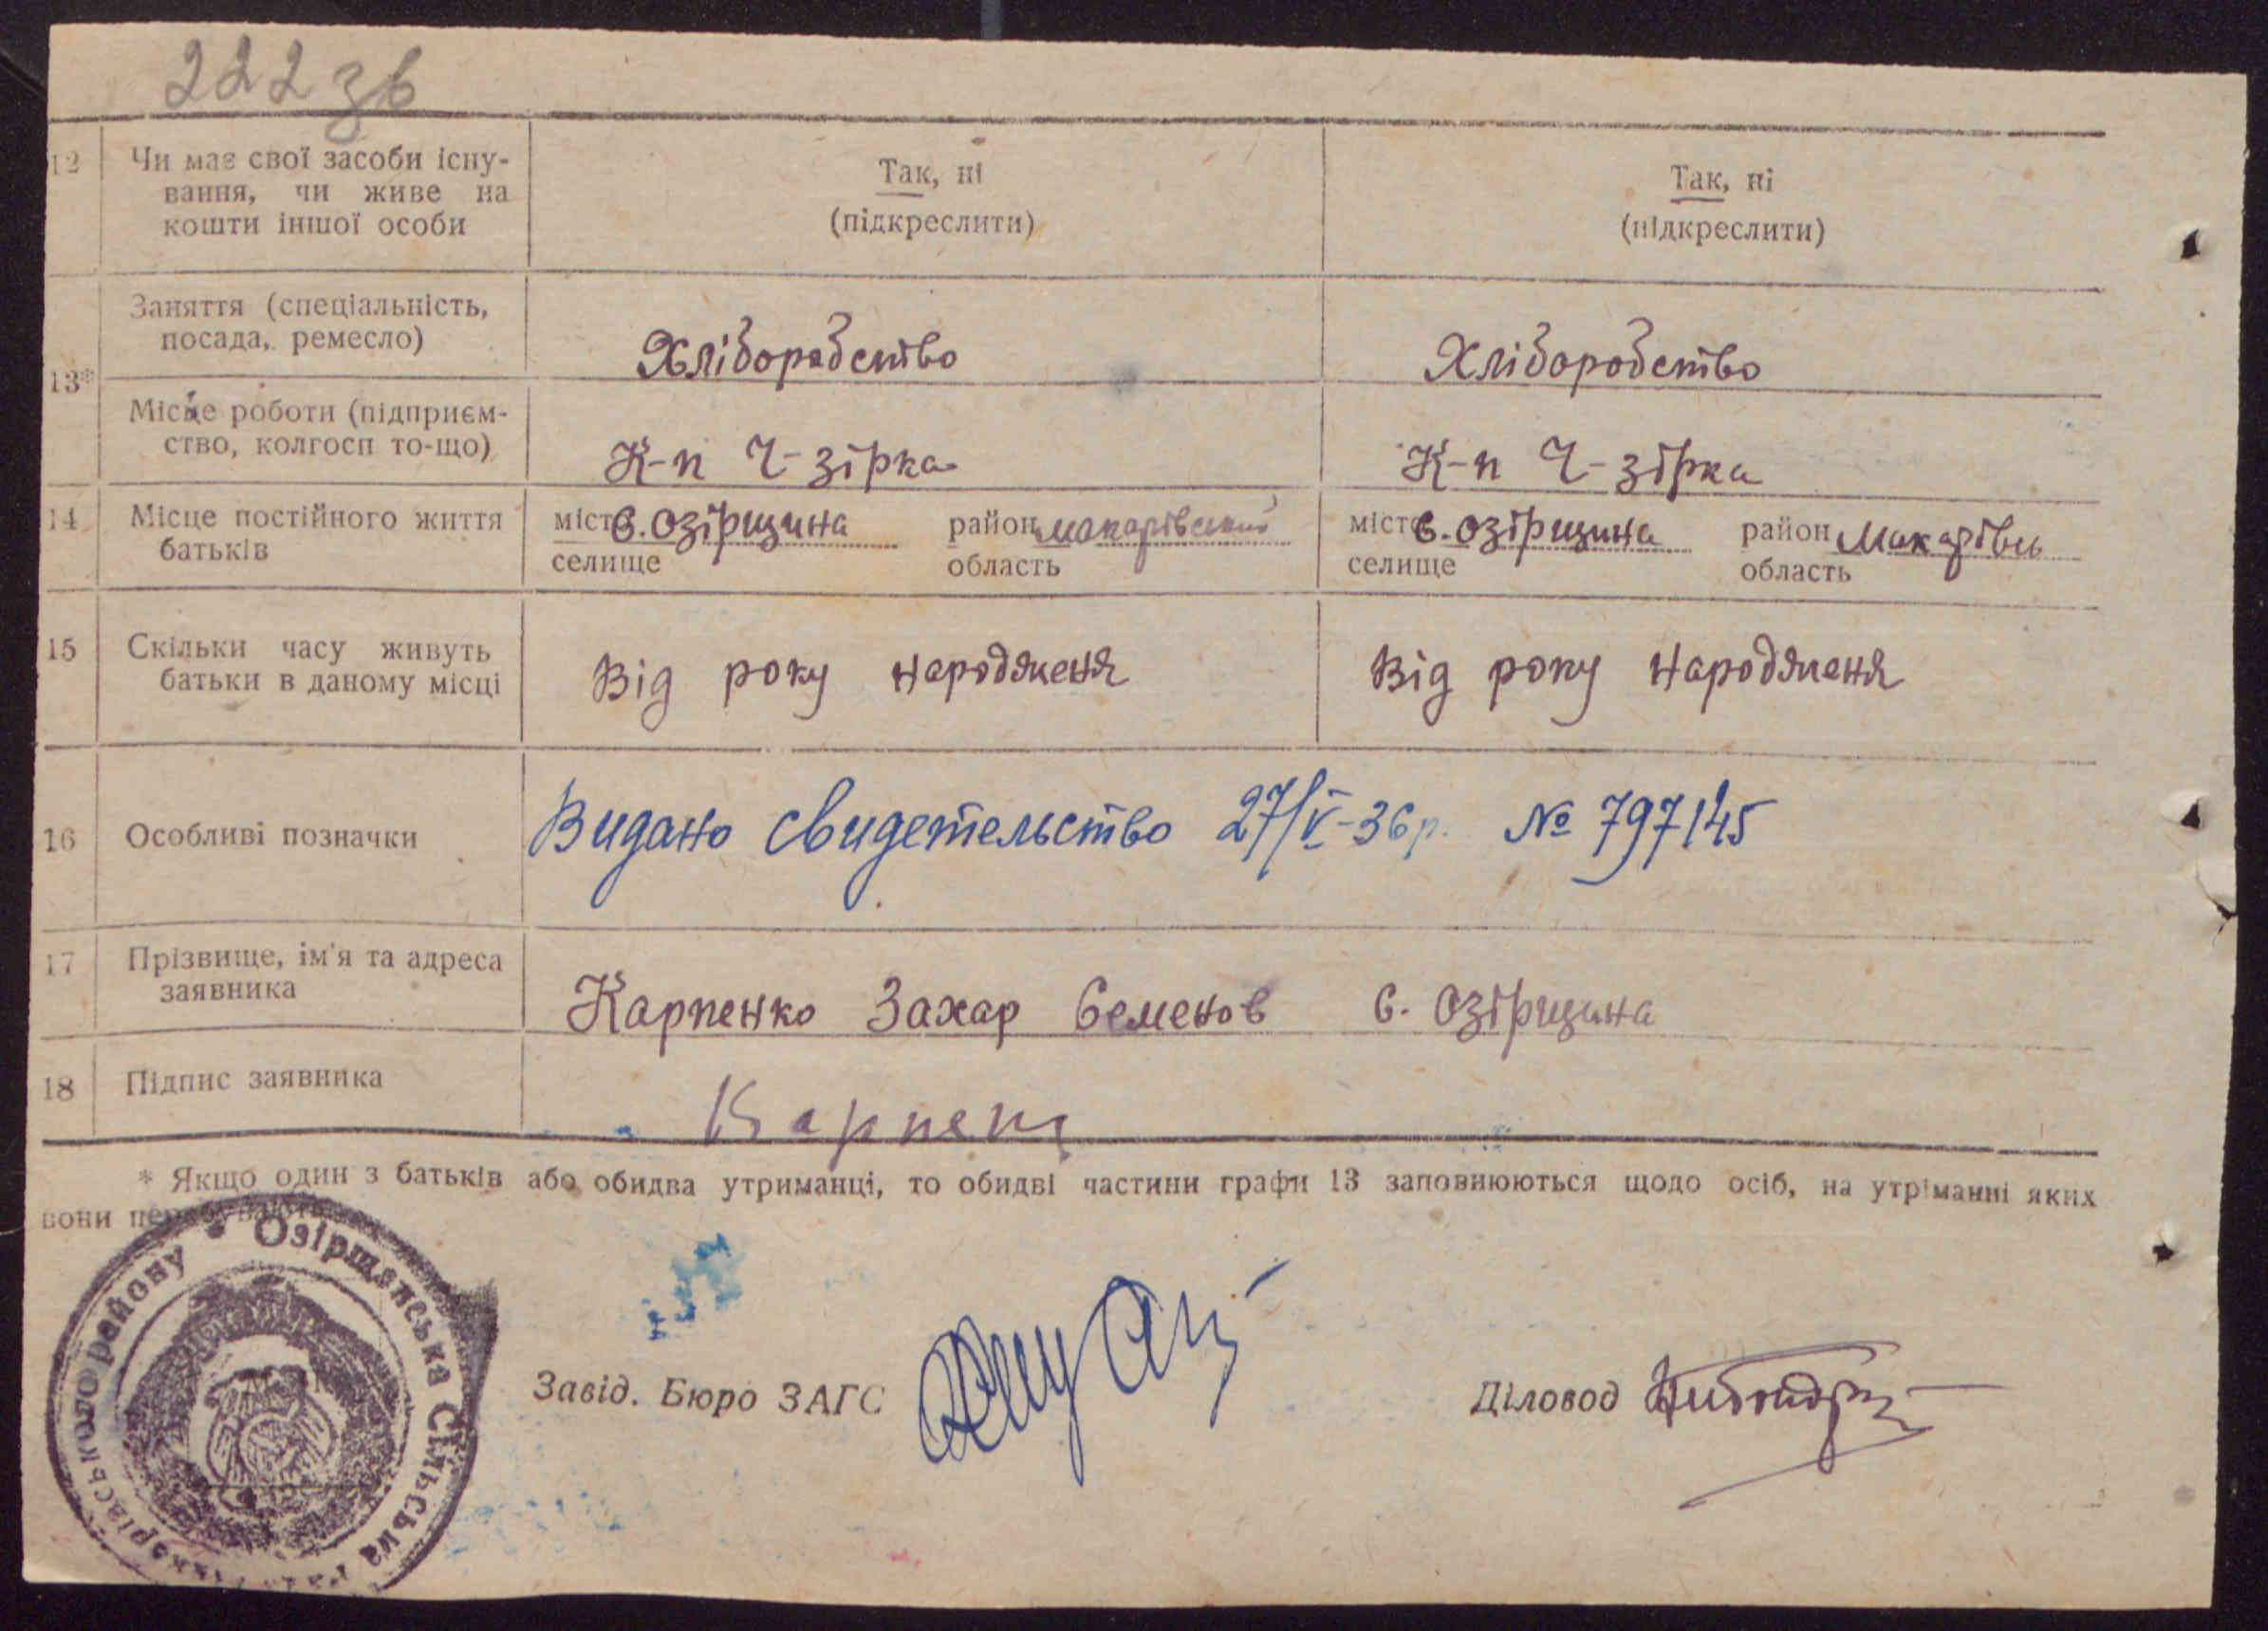 222 зв
12 Чи має свої засоби існу-
вання, чи живе на
кошти іншої особи
Так, ні
(підкреслити)
Так, ні
(підкреслити)
13*
Заняття (спеціальність,
посада, ремесло)
Хліборобство
Хліборобство
Місце роботи (підприєм-
ство, колгосп то-що)
К-п Ч-зірка
К-п Ч-зірка
14 Місце постійного життя
батьків
місто с. Озірщина район Макарівський
селище область
місто с. Озірщина район Макарівсь
селище область
15 Скільки часу живуть
батьки в даному місці
Від року народженя
Від року народженя
16 Особливі позначки
Видано свидетельство 27/V-36 р. № 797145
17 Прізвище, ім'я та адреса
заявника
Карпенко Захар Семенов с. Озірщина
18 Підпис заявника
Карпен
* Якщо один з батьків або обидва утриманці, то обидві частини графи 13 заповнюються щодо осіб, на утриманні яких
вони перебувають.
Озірщанська Сільська
Макарівського району
Завід. Бюро ЗАГС
Діловод